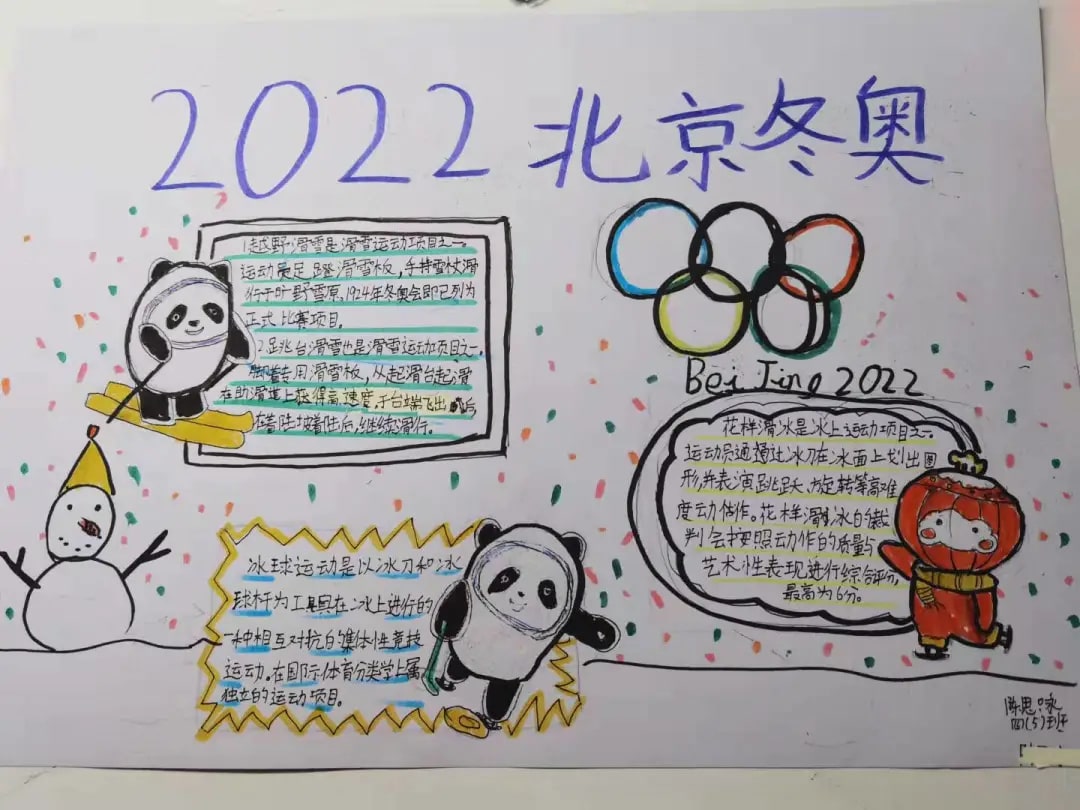 2022北京冬奥
1.越野滑雪是滑雪运动项目之一。
运动员足踏滑雪板，手持雪杖滑
行于旷野雪原。1924年冬奥会即已列为
正式比赛项目。
2.跳台滑雪也是滑雪运动项目之一。
脚着专用滑雪板，从起滑台起滑
在助滑道上获得高速度，于台端飞出后，
在着陆坡着陆后，继续滑行。
Bei Jing 2022
花样滑冰是冰上运动项目之一。
运动员通过冰刀在冰面上划出图
形，并表演跳跃、旋转等高难
度动作。花样滑冰的裁
判会按照动作的质量与
艺术性表现进行综合评分，
最高为6分。
冰球运动是以冰刀和冰
球杆为工具在冰上进行的
一种相互对抗的集体性竞技
运动。在国际体育分类学上属
独立的运动项目。
陈思咏
四(5)班